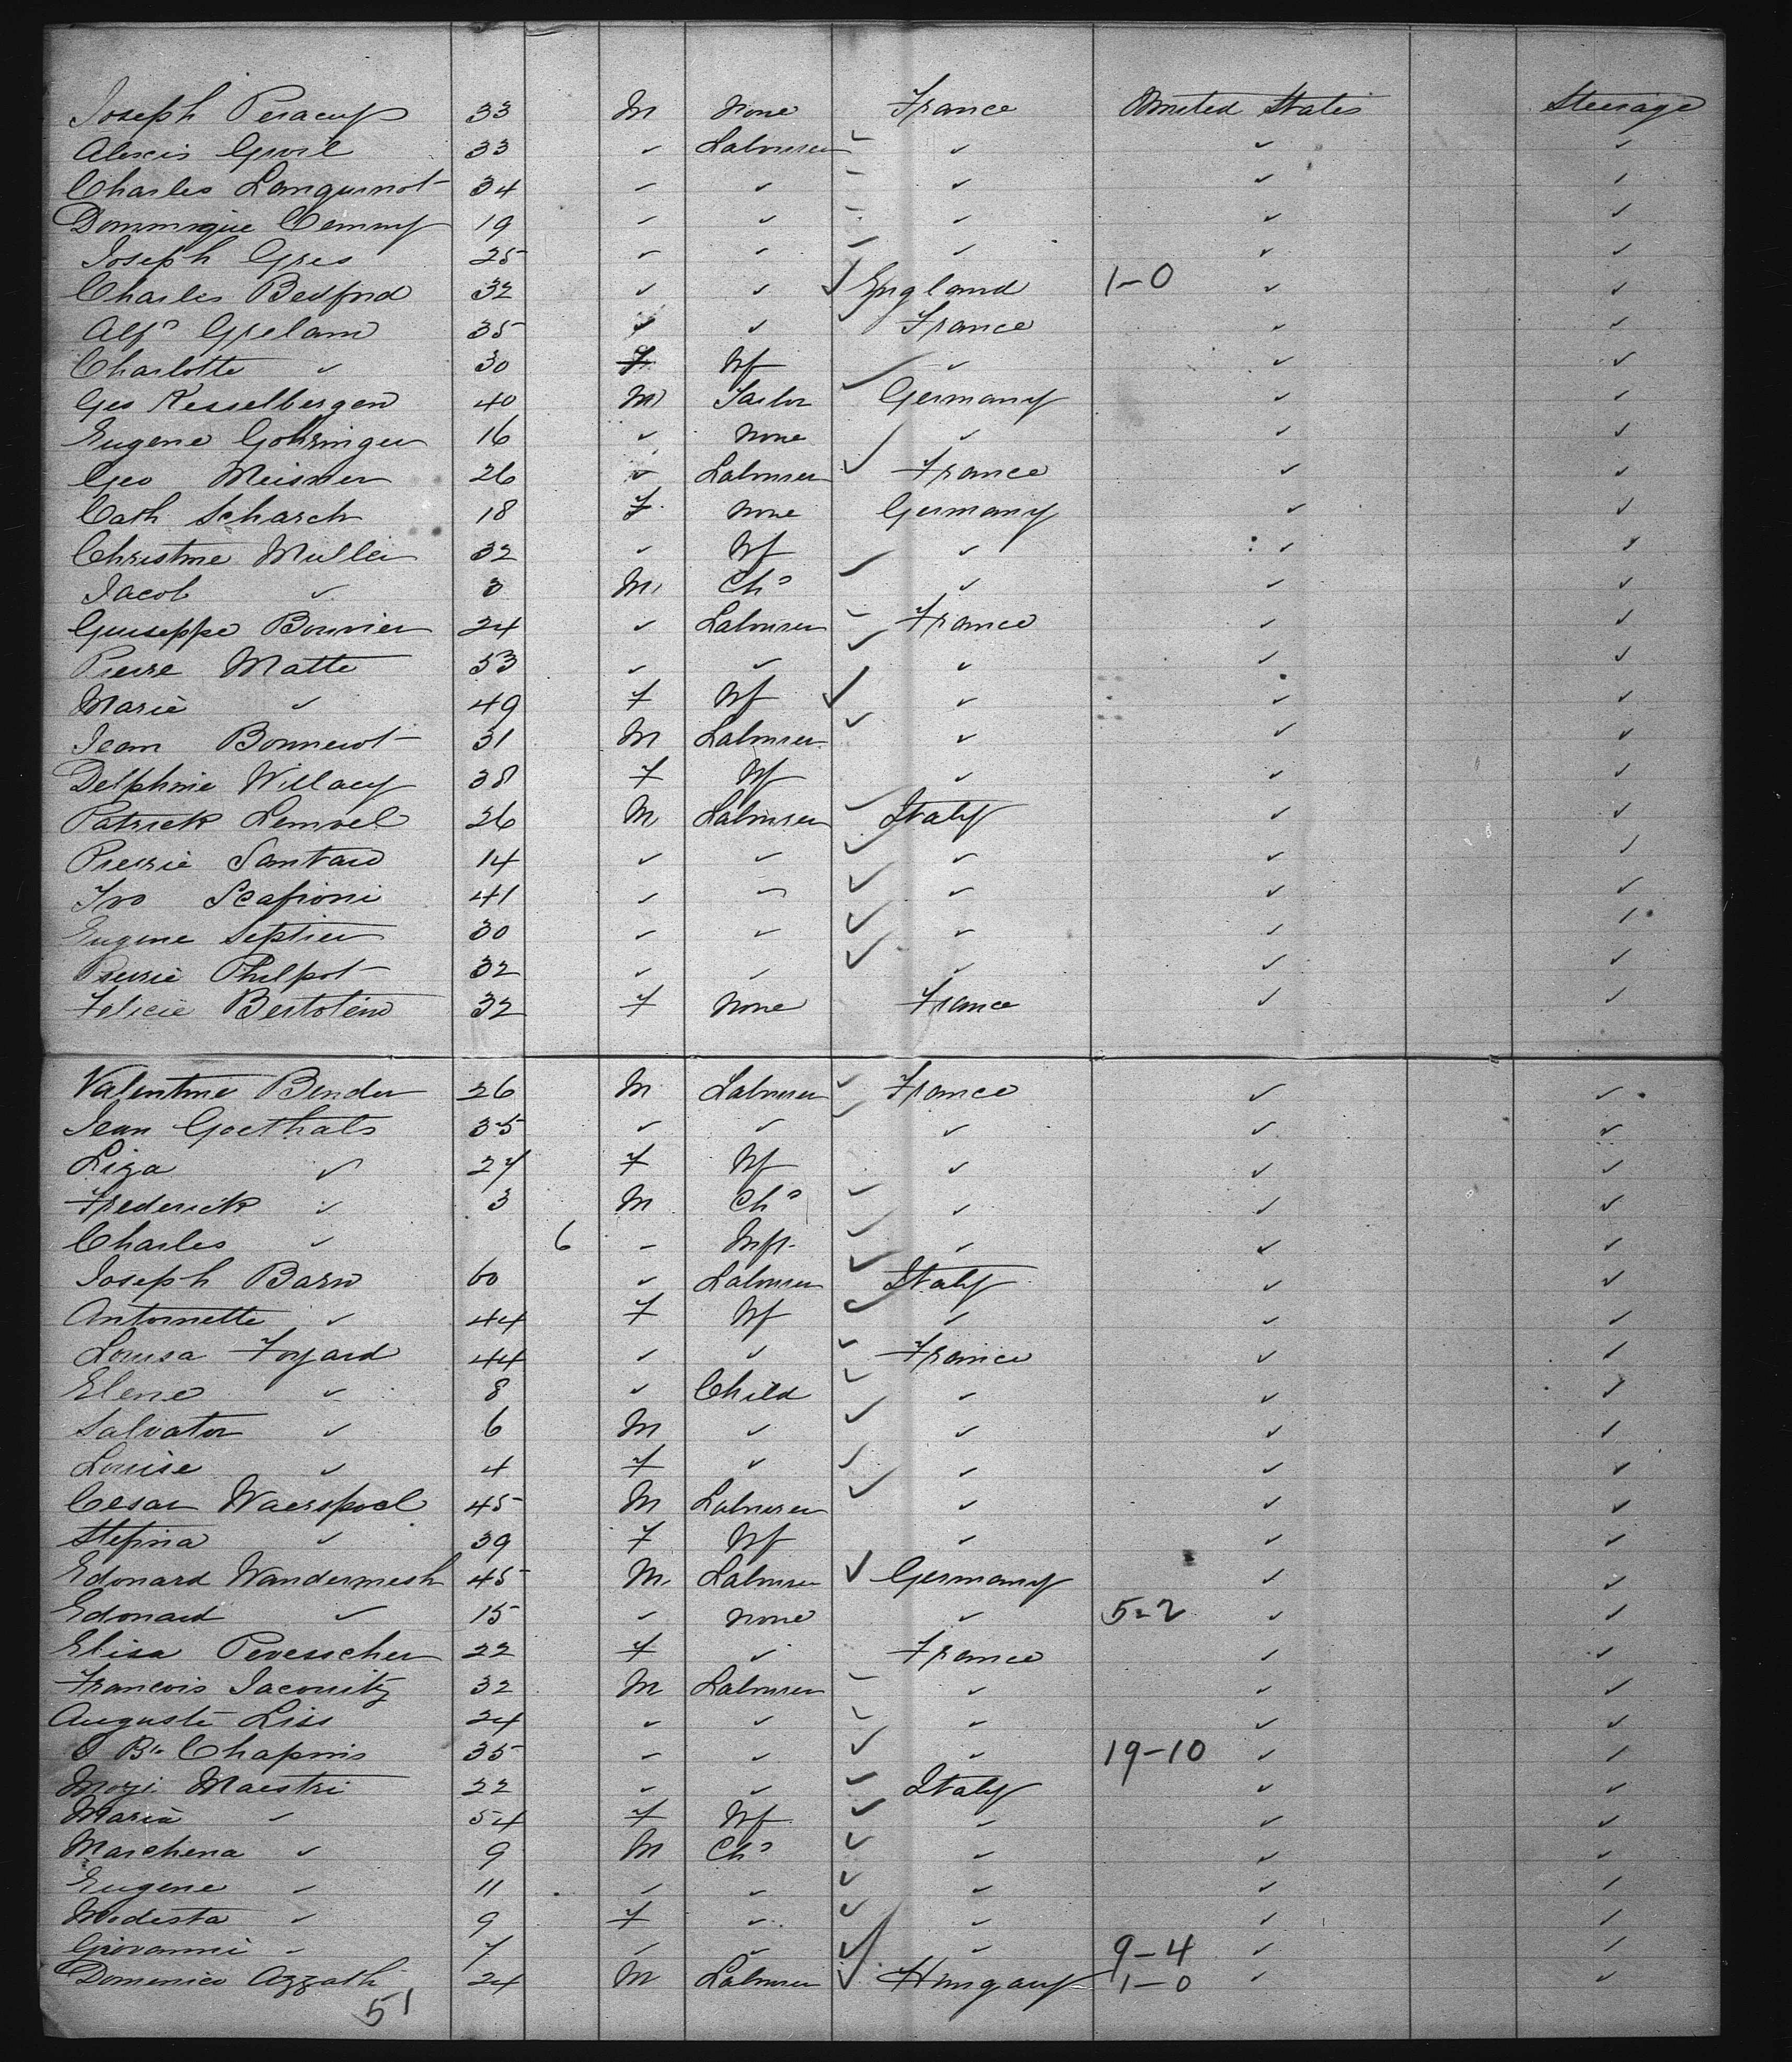 Joseph Peracup 33 M None France United States Steerage
Alexis Gwil 33 " Labourer " " "
Charles Languinot 34 " " " " "
Dominique Cemmy 19 " " " " "
Joseph Gres 25 " " " " "
Charles Bedford 32 " " England 1-0 " "
Alf^d Grelam 35 " " France " "
Charlotte " 30 F Wf " " "
Geo Kesselbergen 40 M Tailor Germany " "
Eugene Gohringer 16 " None " " "
Geo Meisner 26 " Labourer France " "
Cath Scharch 18 F None Germany " "
Christine Muller 32 " Wf " " "
Jacob " 3 M Ch^d " " "
Guiseppe Bouvier 24 " Labourer France " "
Pierre Matte 53 " " " " "
Marie " 49 F Wf " " "
Jean Bonnewt 31 M Labourer " " "
Delphine Willacy 38 F Wf " " "
Patrick Lemoel 26 M Labourer Italy " "
Pierrie Santaid 14 " " " " "
Ivo Scafioni 41 " " " " "
Eugene Septier 30 " " " " "
Pierrie Philpot 32 " " " " "
Felicie Bertolino 32 F None France " "
Valentine Bender 26 M Labourer France " "
Jean Goethals 35 " " " " "
Liza " 27 F Wf " " "
Frederick " 3 M Ch^d " " "
Charles " 6 " Inft " " "
Joseph Barn 60 " Labourer Italy " "
Antoinette " 44 F Wf " " "
Louisa Foyard 44 " " France " "
Elene " 8 " Child " " "
Salvator " 6 M " " " "
Louise " 4 F " " " "
Cesar Waerspoel 45 M Labourer " " "
Stefina " 39 F Wf " " "
Edouard Wandermesh 45 M Labourer Germany " "
Edouard " 15 " None " 5-2 " "
Elisa Pevesscher 22 F " France " "
Francois Jacouitz 32 M Labourer " " "
Auguste Liss 24 " " " " "
J Bte Chapuis 35 " " " 19-10 " "
Moyi Maestri 22 " " Italy " "
Maria " 54 F Wf " " "
Marchena " 9 M Ch^d " " "
Eugene " 11 " " " " "
Modesta " 9 F " " " "
Giovanni " 7 " " " 9-4 " "
Domenico Azzath 24 M Labourer Hungary 1-0 " "
51